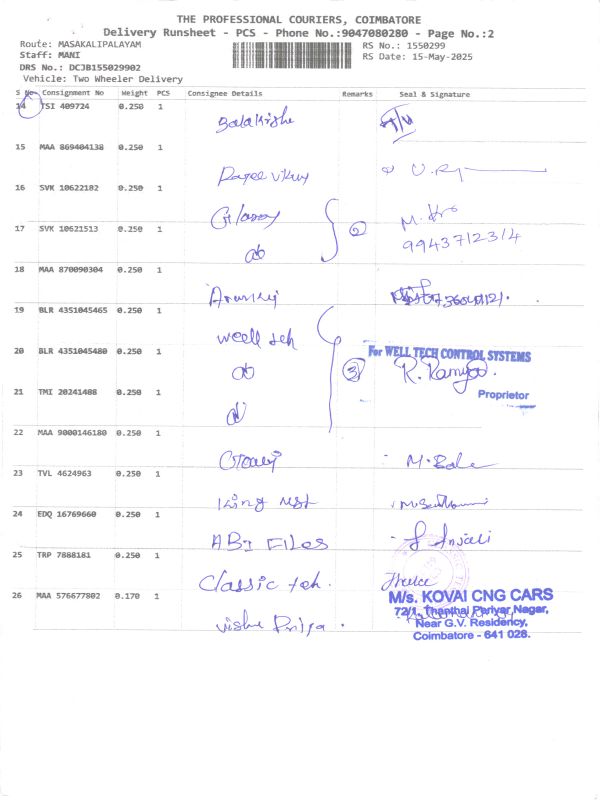 THE PROFESSIONAL COURIERS, COIMBATORE
Delivery Runsheet - PCS - Phone No.:9047080280 - Page No.:2
Route: MASAKALIPALAYAM RS No.: 1550299
Staff: MANI RS Date: 15-May-2025
DRS No.: DCJB155029902
Vehicle: Two Wheeler Delivery
S No Consignment No Weight PCS Consignee Details Remarks Seal & Signature
14 TSI 409724 0.250 1
15 MAA 869404138 0.250 1
16 SVK 10622182 0.250 1
② M.
17 SVK 10621513 0.250 1 9943712314
18 MAA 870090304 0.250 1
19 BLR 4351045465 0.250 1
20 BLR 4351045480 0.250 1 For WELL TECH CONTROL SYSTEMS
③ R. Ramya
21 TMI 20241408 0.250 1 Proprietor
22 MAA 9000146180 0.250 1
M. Bala
23 TVL 4624963 0.250 1
King
24 EDQ 16769660 0.250 1
ABI FILES Anjali
25 TRP 7888181 0.250 1
Classic teh.
26 MAA 576677802 0.170 1 M/s. KOVAI CNG CARS
72/1, Thanthai Periyar Nagar,
Vishu Priya. Near G.V. Residency,
Coimbatore - 641 028.